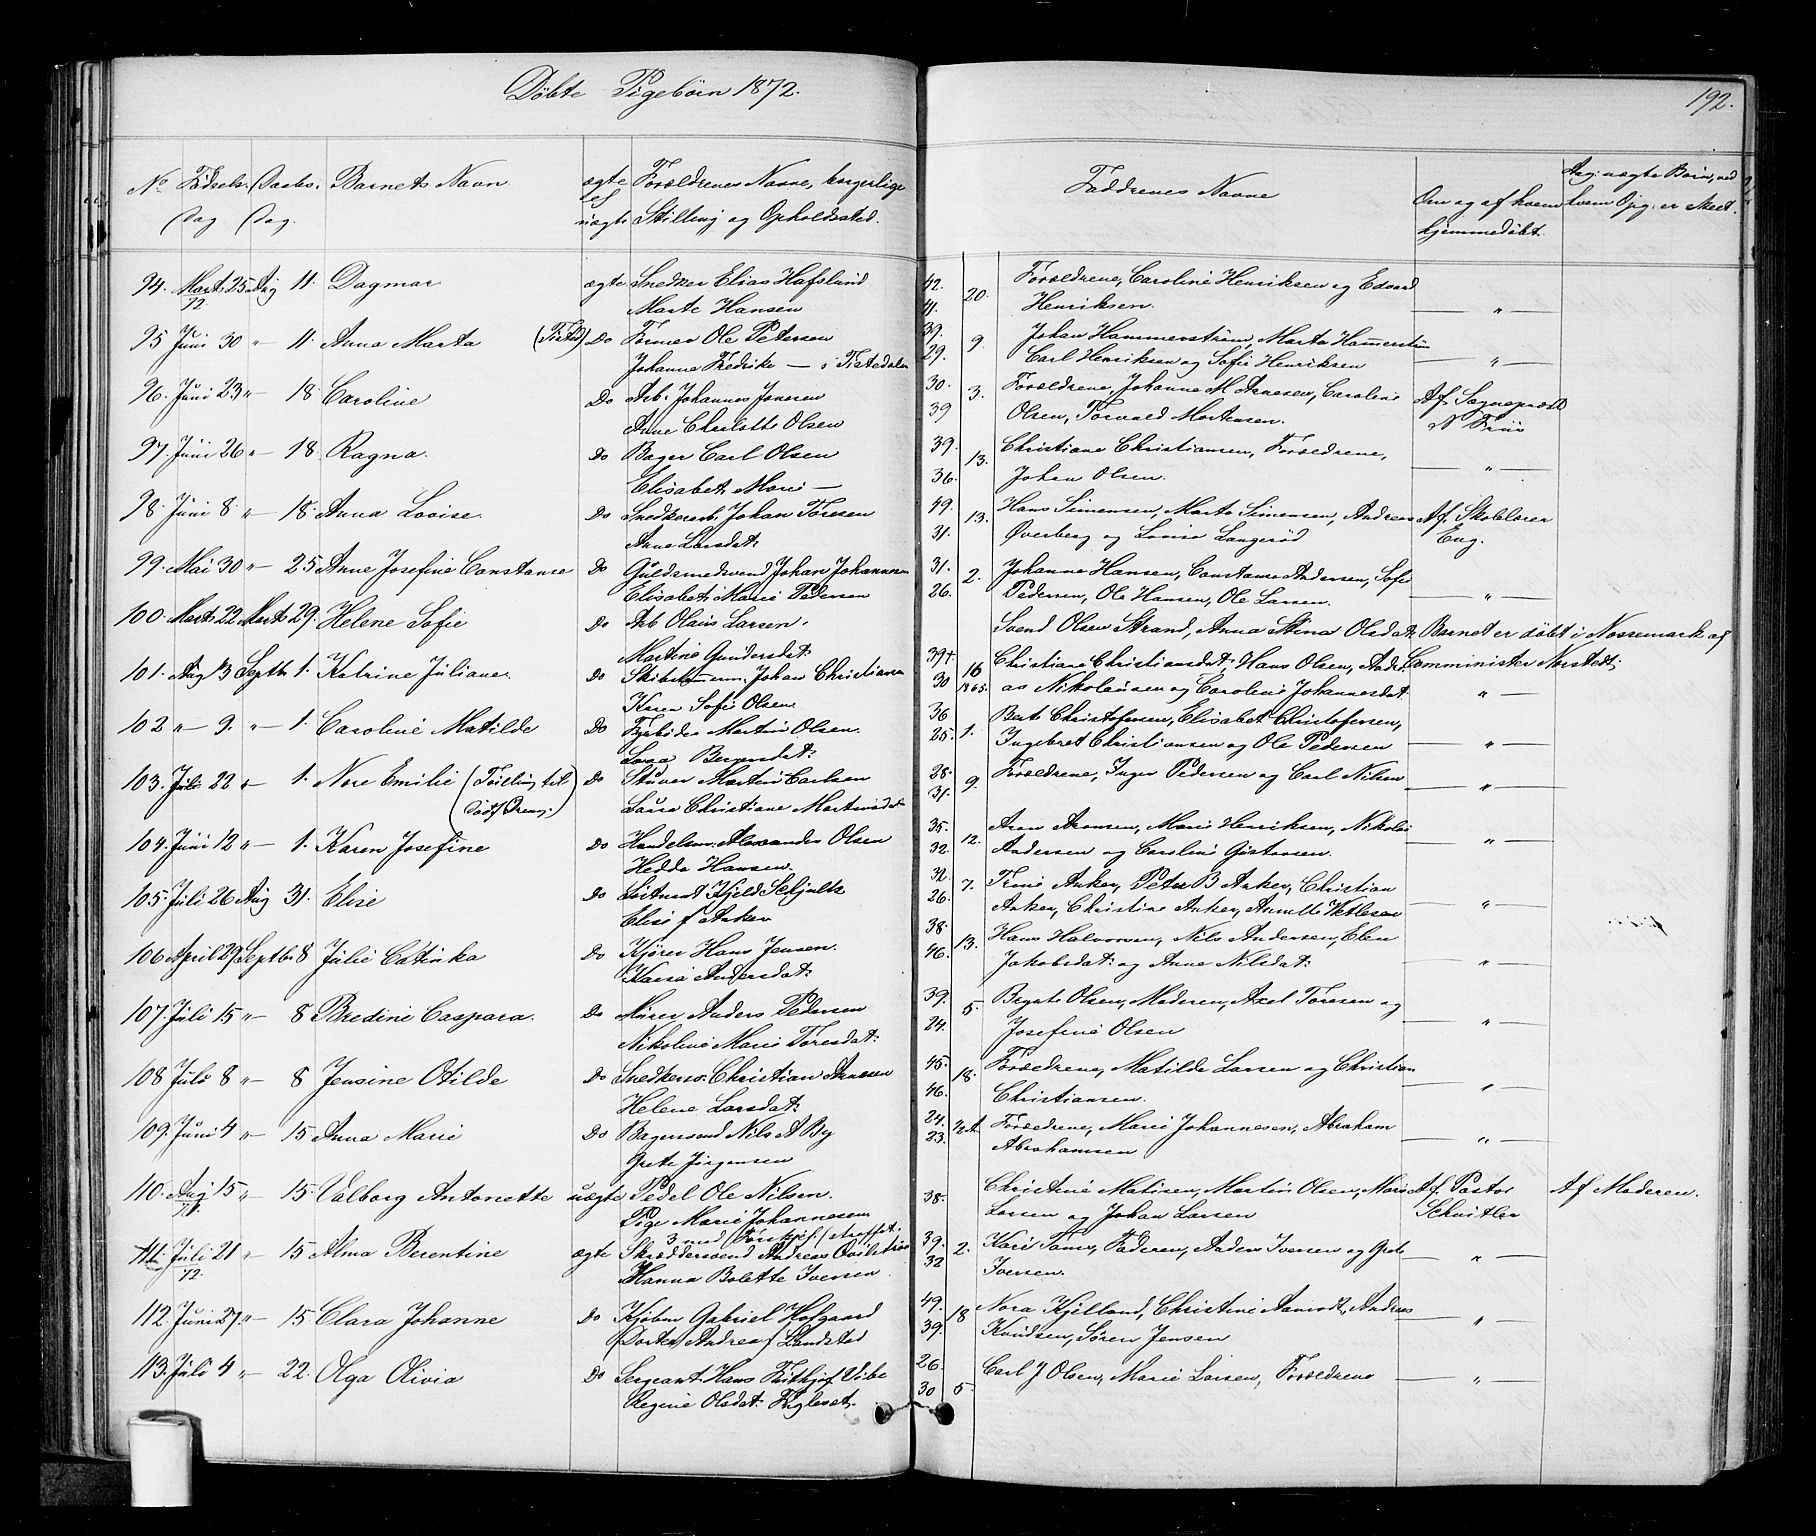 Döbte Pigebörn 1872.
192.
No Födsels Dag Daabs Dag. Barnets Navn ægte el uægte Forældrenes Navne, borgerlige Stilling og Opholdssted. Faddrenes Navne Om og af hvem hjemmedöbt.
94. Marts 25 Aug 11. Dagmar ægte Snedker Elias Hafslund 42. 20. Forældrene, Caroline Henriksen og Edvard
72 Marte Hansen 41. Henriksen. "
95 Juni 30 " 11. Anna Marta Do Former Ole Petersen 39. 9 Johan Hammerström, Marta Hammerström
Johanne Fredrike — i Tistedalen 29. Carl Henriksen og Sofie Henriksen "
96. Juni 23 " 18 Caroline Do Arb. Johannes Jensen 30. 3. Forældrene, Johanne M. Arnesen, Caroline Af Sogneprest
Anne Charlotte Olsen 39 Olsen, Torvald Mortensen. N Friis
97. Juni 26 " 18. Ragna. Do Bager Carl Olsen 39. 13. Christiane Christiansen, Forældrene,
Elisabet Marie — 36. Johan Olsen. "
98. Juni 8 " 18. Anna Lovise. Do Snedkerarb. Johan Toresen 49. 13. Hans Simensen, Marta Simensen, Andreas Af. Skolelærer
Anne Larsdat: 31. Överberg og Lovise Langeröd Eng.
99. Mai 30 " 25 Anne Josefine Constanse Do Guldsmedsvend Johan Johannesen 31. 2. Johanne Hansen, Constanse Andersen, Sofie
Elisabet Marie Pedersen 26. Pedersen, Ole Hansen, Ole Larsen. "
100. Marts 22 Marts 29. Helene Sofie Do Arb Olaus Larsen. Svend Olsen Strand, Anna Stina Olsdat: Barnet er döbt i Nossemark af
Martine Gundersdat: Comminister Norstedt.
101. Aug 3 Septb 1. Katrine Juliane. Do Skibstömmerm. Johan Christiansen 39 16 Christiane Christiansdat: Hans Olsen, Andre-
Karen Sofie Olsen. 30 1865. as Nikolausen og Caroline Johannesdat. "
102 " 9. " 1. Caroline Matilde Do Martin Olsen. 36 1. Berte Christofersen, Elisabet Christofersen,
Bergersdat: 25. Ingebret Christiansen og Ole Pedersen "
103. Juli 22 " 1. Nore Emilie (Tvilling til Do Stuver Martin Carlsen 28. 9. Forældrene, Inger Pedersen og Carl Nilsen
dödf. Dreng.) Laura Christiane Martinsdat 31. "
104. Juni 12 " 1. Karen Josefine Do Handelsm. Alexander Olsen 35. 12. Aron Aronsen, Marie Henriksen, Nikolai
Hedda Hansen. 32. Andersen og Caroline Gustavsen. "
105. Juli 26 Aug 31. Elise Do Löitnant Kjeld Schjultz 32. 7. Trine Anker, Peter B Anker, Christian
Elise f Anker 26. Anker, Christine Anker, Annette Vetlesen "
106 April 29 Septb. 8 Julie Catinka Do Kjörer Hans Jensen. 38. 13. Hans Halvorsen, Nils Andersen, Elen
Karia Andersdat: 46. Jakobsdat: og Anne Nilsdat: "
107. Juli 15 " 8 Bredine Caspara. Do Murer Anders Pedersen 39. 5. Olsen, Moderen, Axel Toresen og
Nikoline Marie Toresdat: 24. Josefine Olsen "
108 Juli 8 " 8 Jensine Otilde Do Snedkersv. Christian Arnesen 45. 18. Forældrene, Matilde Larsen og Christian
Helene Larsdat: 46. Christiansen. "
109. Juni 4 " 15 Anna Marie Do Bagersvend Nils A By 24. Forældrene, Marie Johannesen, Abraham
Grete Jörgensen 23. Abrahamsen "
110. Aug 15 " 15. Valborg Antonette uægte Pedel Ole Nilsen. 38. Christine Matisen, Martin Olsen, Marie Af Pastor Af Moderen.
71. Pige Marie Johannesen Larsen og Johan Larsen Schnitler
111. Juli 21 " 15 Alma Berentine ægte Skræddersvend Andreas 39. 2. Kari Faderen, Anders Iversen og Grete
72. Hanna Bolette Iversen. 32 Iversen. "
112. Juni 27. " 15. Clara Johanne Do Kjöbm. Gabriel Hofgaard 49. 18 Nora Kjelland, Christine Aamodt, Andreas
Dortea Andrea f Landstad 39. Knudsen, Sören Jensen "
113. Juli 4 " 22. Olga Olivia Do Sergeant. Hans Fritjof Vibe 26. 5. Carl J Olsen, Marie Larsen, Forældrene
Regine Olsdat: 30 "